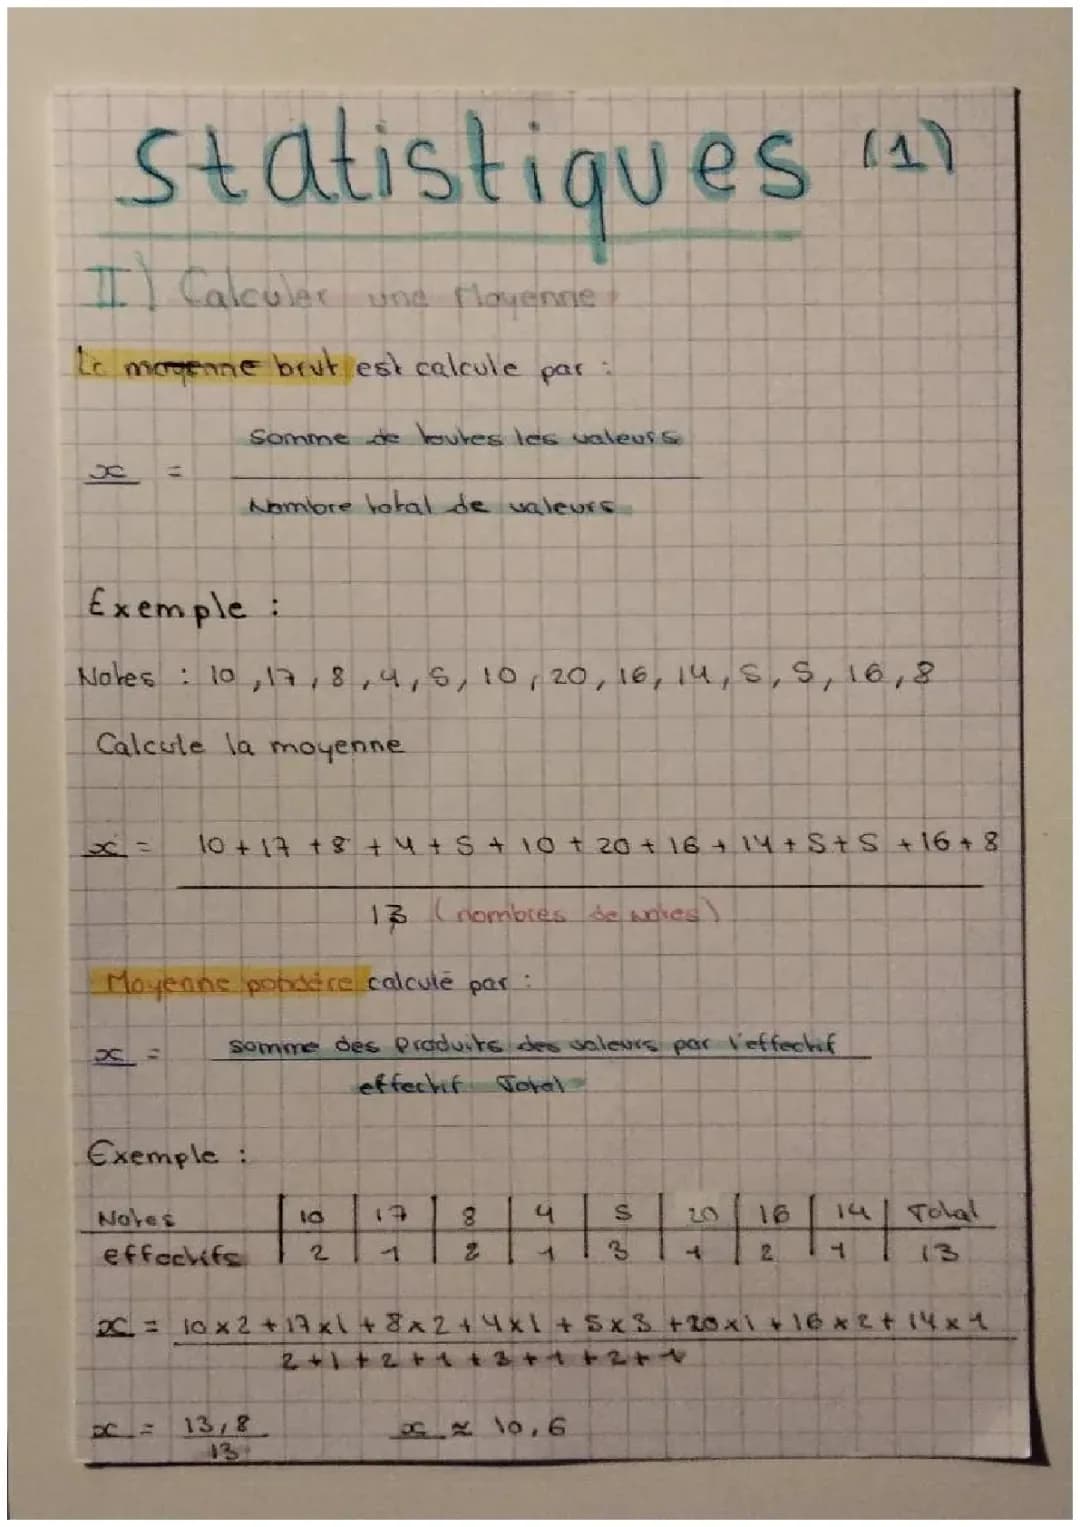 Statistiques (1)
II) Calculer une Moyenne
La moyenne brut est calcule par :
x = Somme de toutes les valeurs
Nombre total de valeurs
Exemple :
Notes : 10, 17, 8, 4, 5, 10, 20, 16, 14, 5, 5, 16, 8
Calcule la moyenne
x = 10 + 17 + 8 + 4 + 5 + 10 + 20 + 16 + 14 + 5 + 5 + 16 + 8
13 (nombres de notes)
Moyenne pondére calculé par :
x = somme des Produits des valeurs par l'effectif
effectif Total
Exemple :
Notes | 10 | 17 | 8 | 4 | 5 | 20 | 16 | 14 | Total
effectifs | 2 | 1 | 2 | 1 | 3 | 1 | 2 | 1 | 13
x = 10 x 2 + 17 x 1 + 8 x 2 + 4 x 1 + 5 x 3 + 20 x 1 + 16 x 2 + 14 x 1
2 + 1 + 2 + 1 + 3 + 1 + 2 + 1
x = 13,8 x ≈ 10,6
13